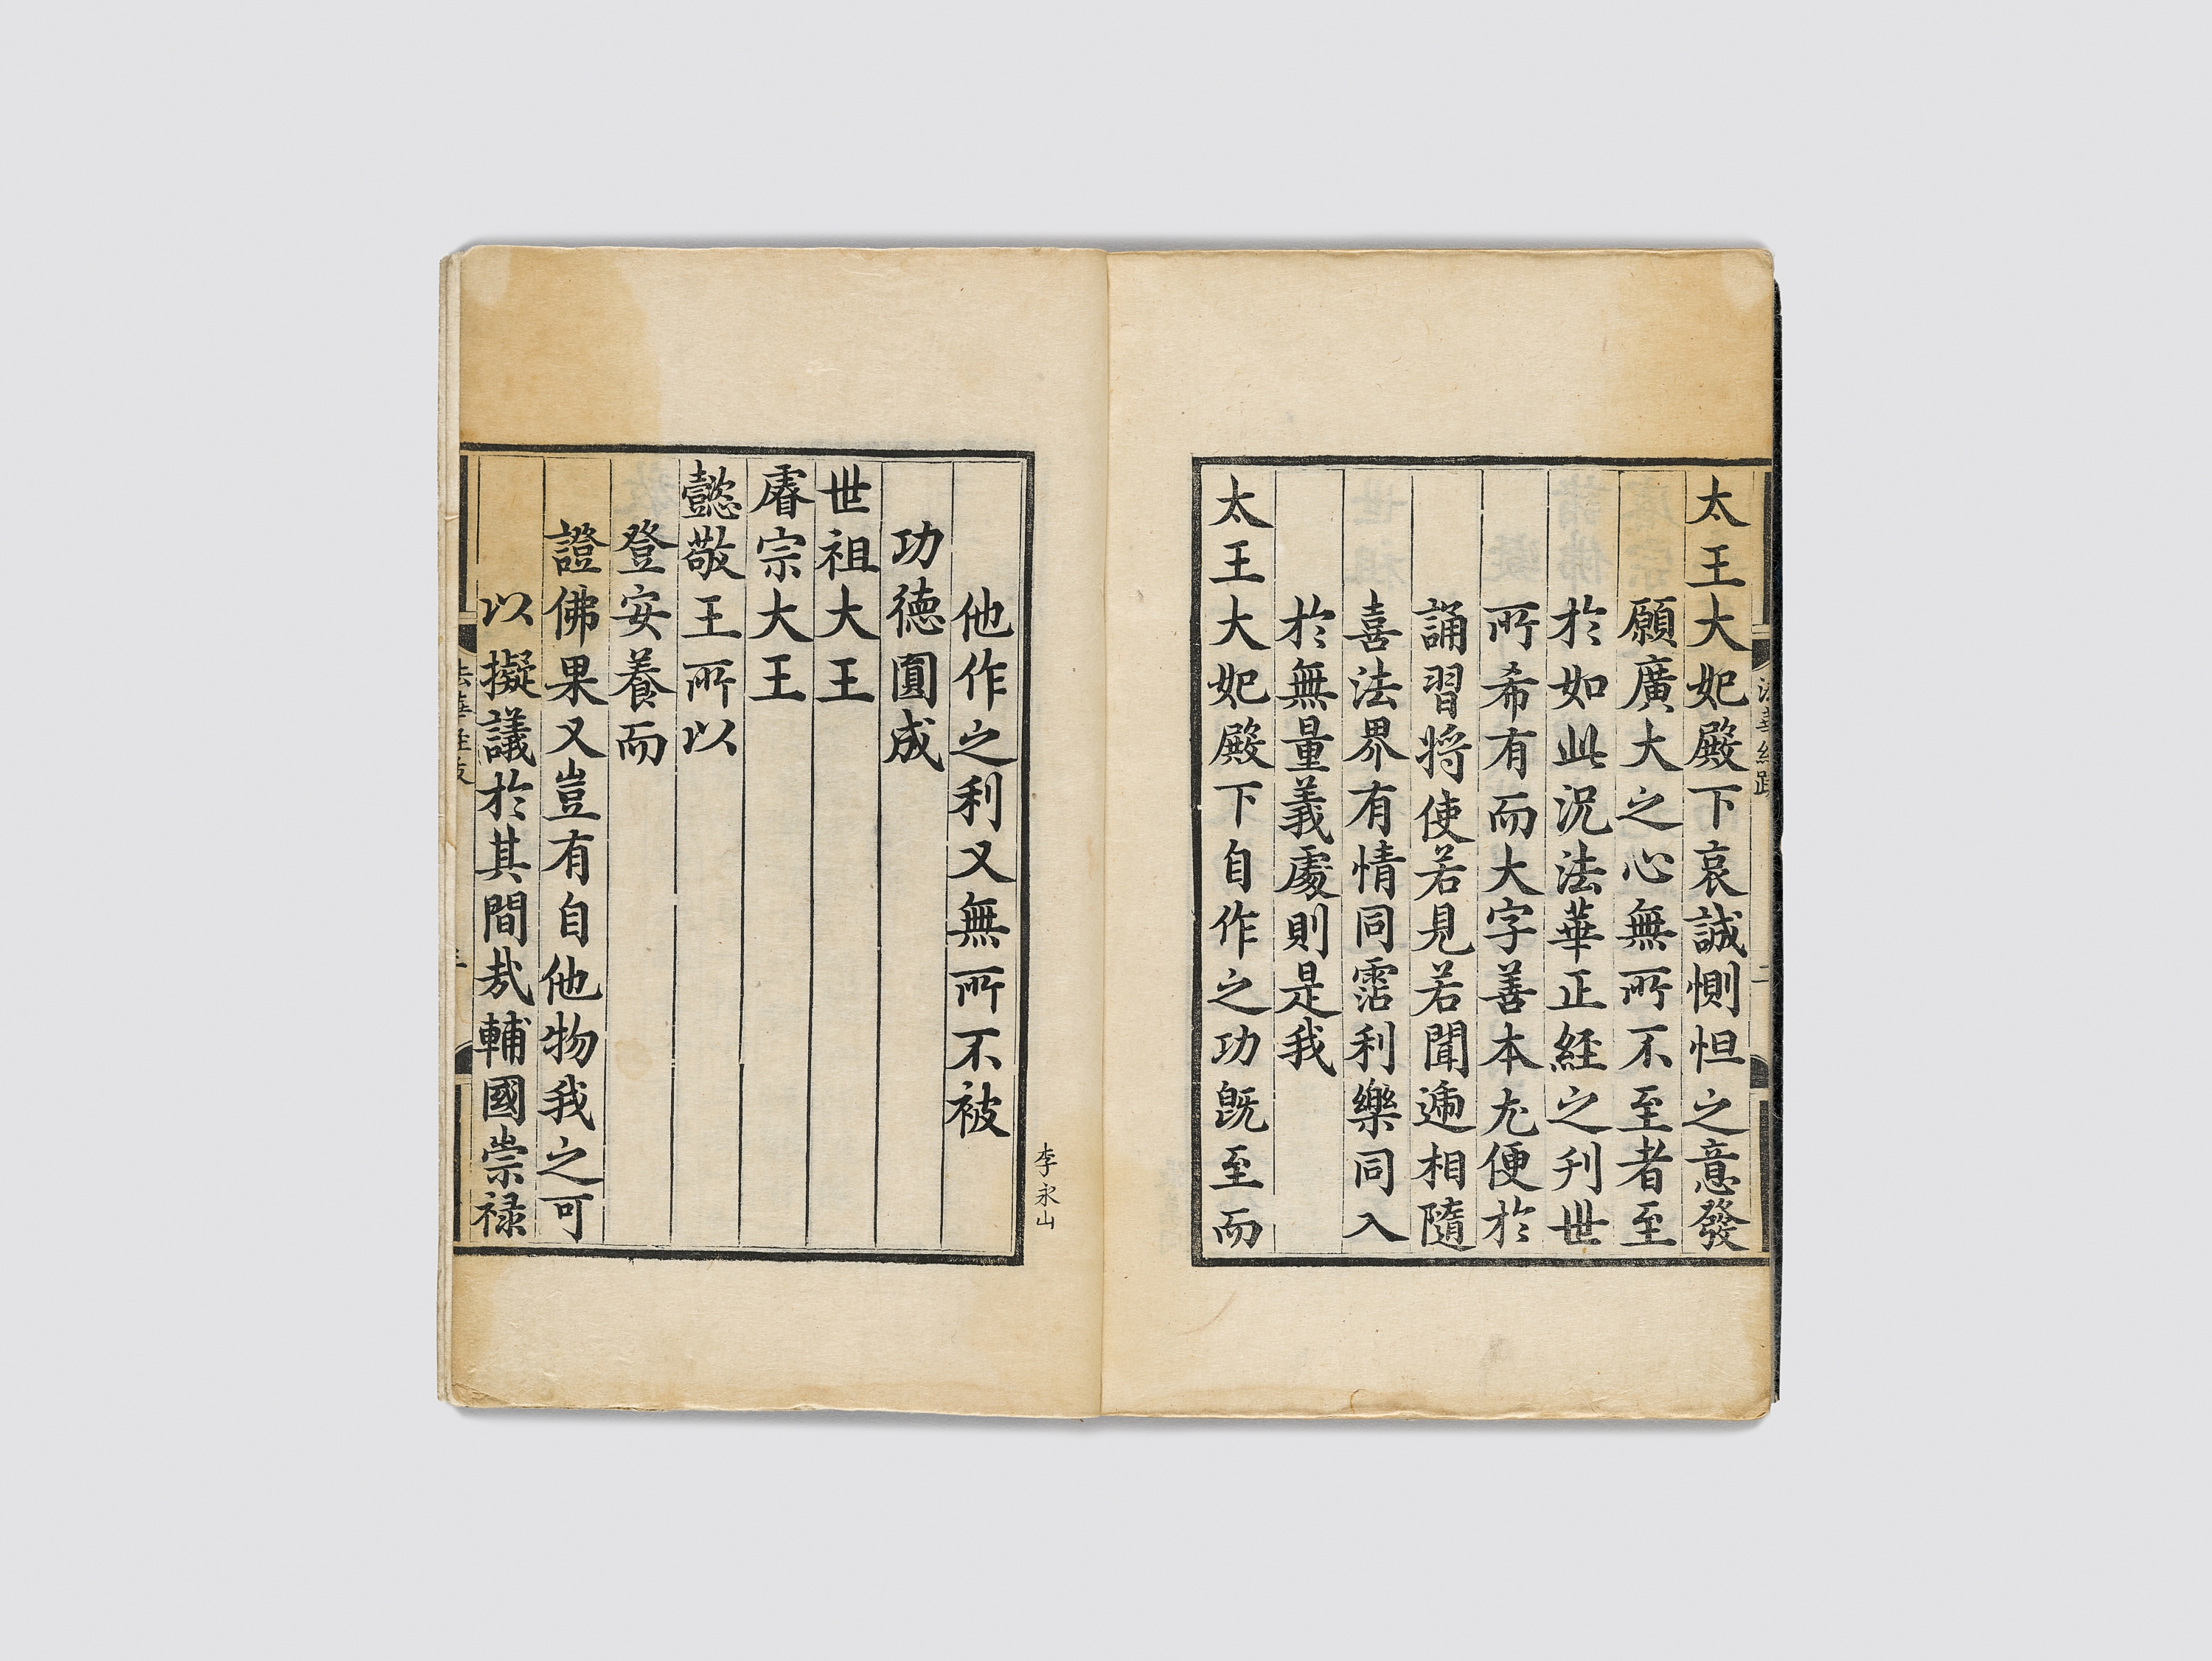 太王大妃殿下哀誠惻怛之意發
願廣大之心無所不至者至
於如此況法華正經之刋世
所希有而大字善本尤便於
誦習將使若見若聞遞相隨
喜法界有情同霑利樂同入
於無量義處則是我
太王大妃殿下自作之功旣至而
他作之利又無所不被
功德圓成
世祖大王
睿宗大王
懿敬王所以
登安養而
證佛果又豈有自他物我之可
以擬議於其間㦲輔國崇祿
李永山
法華經跋
二